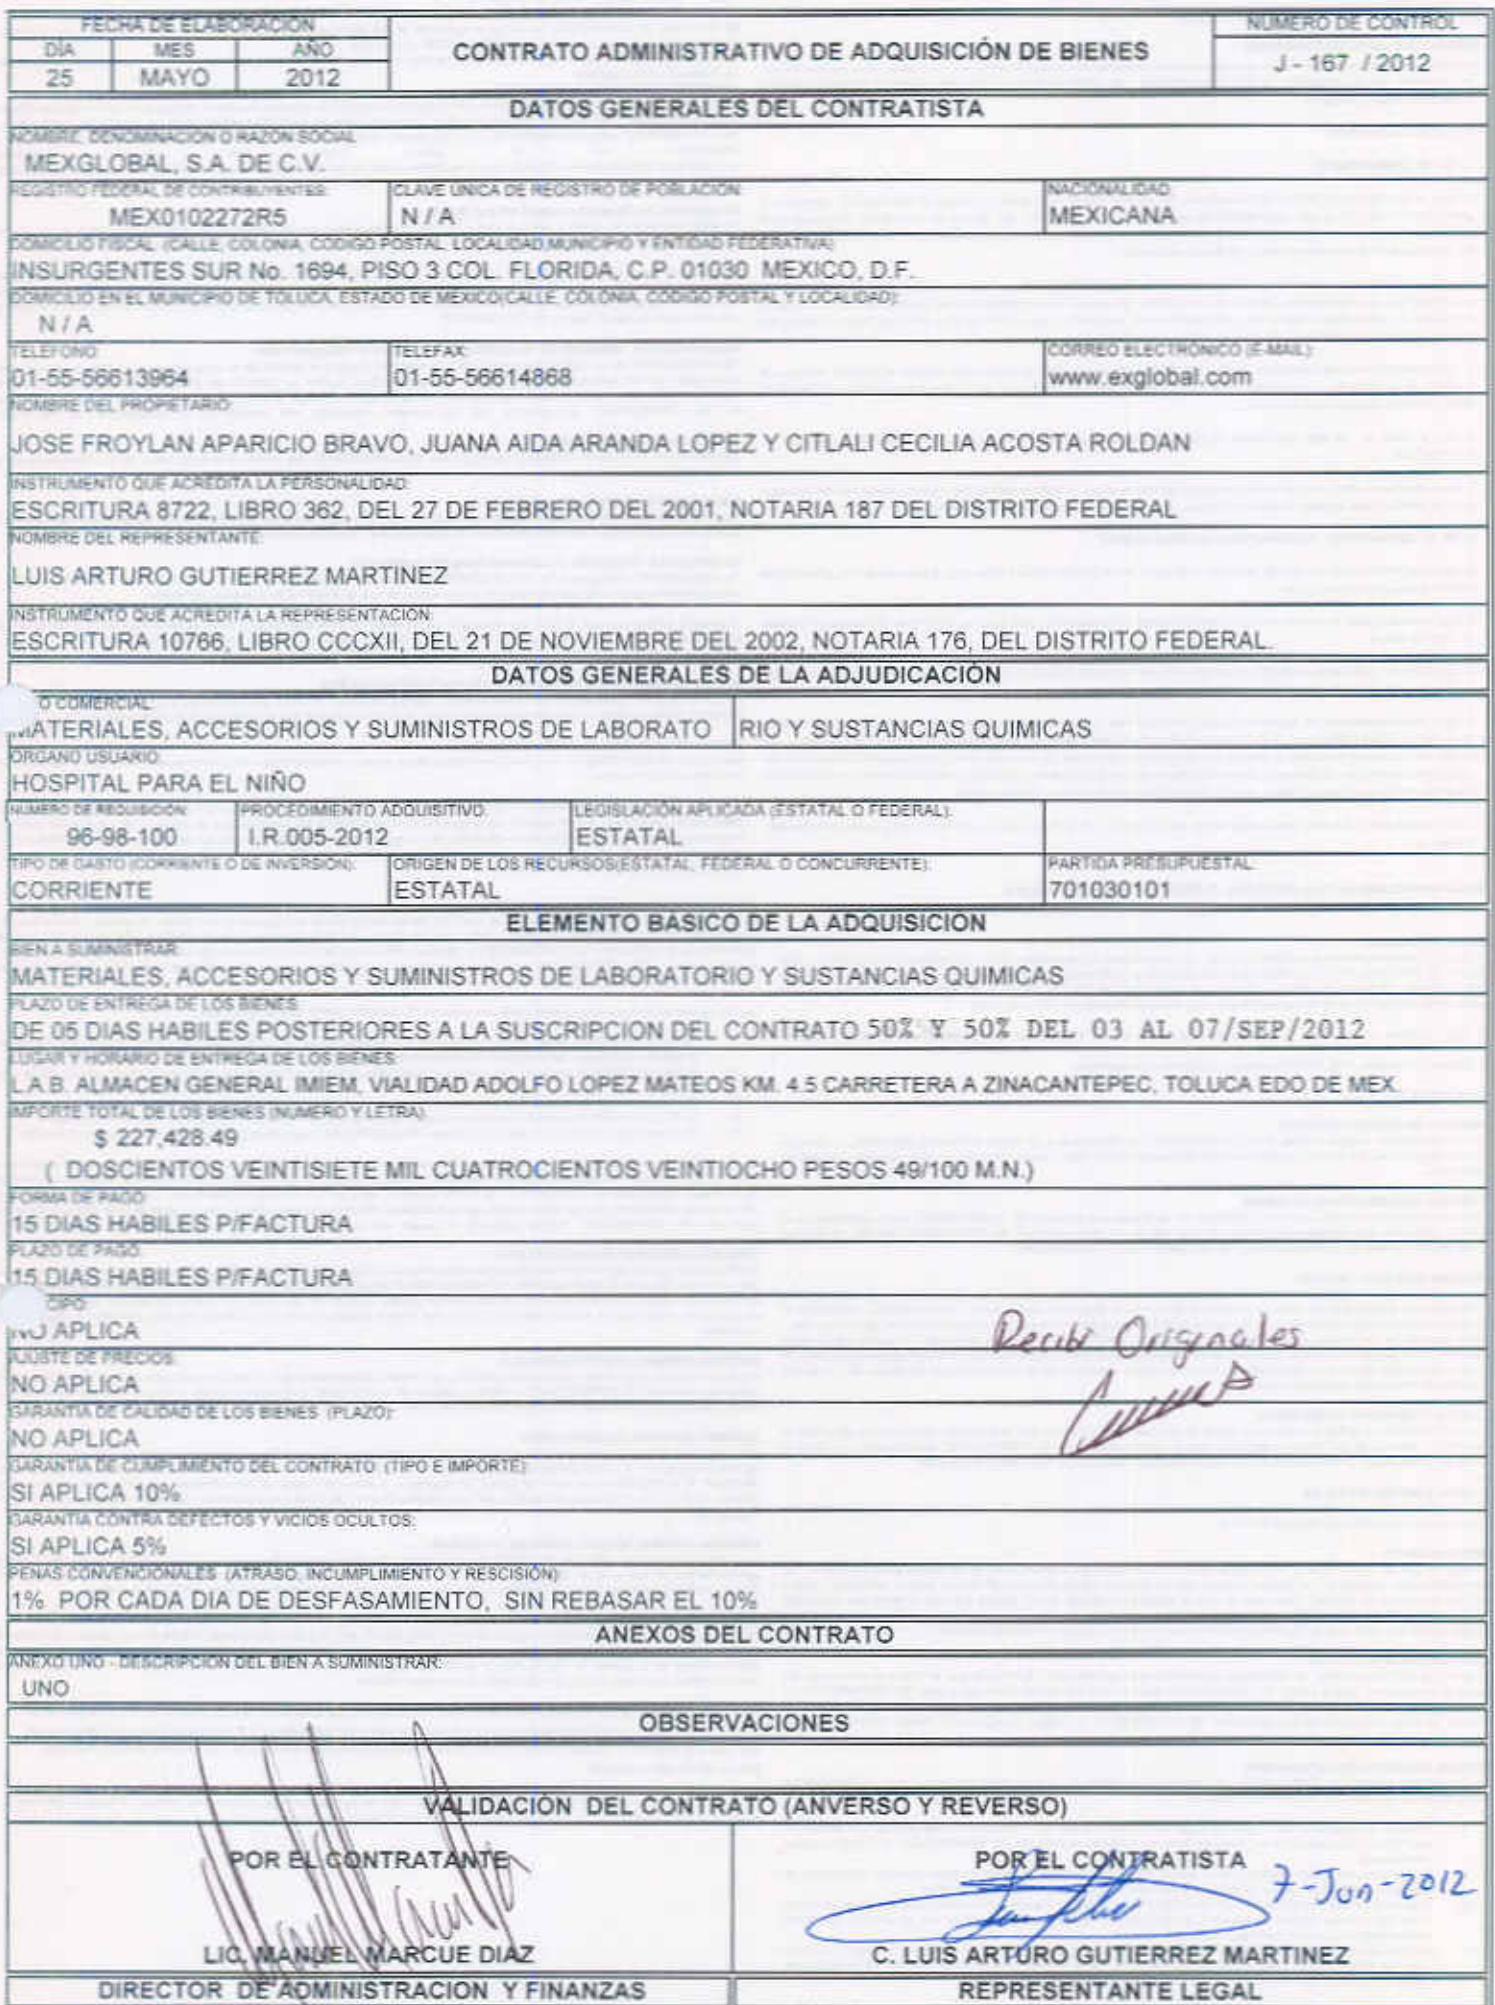 FECHA DE ELABORACIÓN
DÍA MES AÑO
25 MAYO 2012
CONTRATO ADMINISTRATIVO DE ADQUISICIÓN DE BIENES
NUMERO DE CONTROL
J - 167 / 2012
DATOS GENERALES DEL CONTRATISTA
NOMBRE, DENOMINACION O RAZON SOCIAL
MEXGLOBAL, S.A. DE C.V.
REGISTRO FEDERAL DE CONTRIBUYENTES: CLAVE UNICA DE REGISTRO DE POBLACION: NACIONALIDAD:
MEX0102272R5 N / A MEXICANA
DOMICILIO FISCAL (CALLE, COLONIA, CODIGO POSTAL, LOCALIDAD,MUNICIPIO Y ENTIDAD FEDERATIVA):
INSURGENTES SUR No. 1694, PISO 3 COL. FLORIDA, C.P. 01030 MEXICO, D.F.
DOMICILIO EN EL MUNICIPIO DE TOLUCA, ESTADO DE MEXICO(CALLE, COLONIA, CODIGO POSTAL Y LOCALIDAD):
N / A
TELEFONO: TELEFAX: CORREO ELECTRONICO (E-MAIL):
01-55-56613964 01-55-56614868 www.exglobal.com
NOMBRE DEL PROPIETARIO:
JOSE FROYLAN APARICIO BRAVO, JUANA AIDA ARANDA LOPEZ Y CITLALI CECILIA ACOSTA ROLDAN
INSTRUMENTO QUE ACREDITA LA PERSONALIDAD:
ESCRITURA 8722, LIBRO 362, DEL 27 DE FEBRERO DEL 2001, NOTARIA 187 DEL DISTRITO FEDERAL
NOMBRE DEL REPRESENTANTE:
LUIS ARTURO GUTIERREZ MARTINEZ
INSTRUMENTO QUE ACREDITA LA REPRESENTACION:
ESCRITURA 10766, LIBRO CCCXII, DEL 21 DE NOVIEMBRE DEL 2002, NOTARIA 176, DEL DISTRITO FEDERAL.
DATOS GENERALES DE LA ADJUDICACIÓN
O COMERCIAL:
MATERIALES, ACCESORIOS Y SUMINISTROS DE LABORATO RIO Y SUSTANCIAS QUIMICAS
ORGANO USUARIO:
HOSPITAL PARA EL NIÑO
NUMERO DE REQUISICION: PROCEDIMIENTO ADQUISITIVO: LEGISLACIÓN APLICADA (ESTATAL O FEDERAL):
96-98-100 I.R.005-2012 ESTATAL
TIPO DE GASTO (CORRIENTE O DE INVERSION): ORIGEN DE LOS RECURSOS(ESTATAL, FEDERAL O CONCURRENTE): PARTIDA PRESUPUESTAL:
CORRIENTE ESTATAL 701030101
ELEMENTO BASICO DE LA ADQUISICION
BIEN A SUMINISTRAR:
MATERIALES, ACCESORIOS Y SUMINISTROS DE LABORATORIO Y SUSTANCIAS QUIMICAS
PLAZO DE ENTREGA DE LOS BIENES:
DE 05 DIAS HABILES POSTERIORES A LA SUSCRIPCION DEL CONTRATO 50% Y 50% DEL 03 AL 07/SEP/2012
LUGAR Y HORARIO DE ENTREGA DE LOS BIENES:
L.A.B. ALMACEN GENERAL IMIEM, VIALIDAD ADOLFO LOPEZ MATEOS KM. 4.5 CARRETERA A ZINACANTEPEC, TOLUCA EDO DE MEX.
IMPORTE TOTAL DE LOS BIENES (NUMERO Y LETRA):
$ 227,428.49
( DOSCIENTOS VEINTISIETE MIL CUATROCIENTOS VEINTIOCHO PESOS 49/100 M.N.)
FORMA DE PAGO:
15 DIAS HABILES P/FACTURA
PLAZO DE PAGO:
15 DIAS HABILES P/FACTURA
CIPO:
NO APLICA
AJUSTE DE PRECIOS:
NO APLICA
Recibi Originales
GARANTIA DE CALIDAD DE LOS BIENES (PLAZO):
NO APLICA
GARANTIA DE CUMPLIMIENTO DEL CONTRATO (TIPO E IMPORTE):
SI APLICA 10%
GARANTIA CONTRA DEFECTOS Y VICIOS OCULTOS:
SI APLICA 5%
PENAS CONVENCIONALES (ATRASO, INCUMPLIMIENTO Y RESCISIÓN):
1% POR CADA DIA DE DESFASAMIENTO, SIN REBASAR EL 10%
ANEXOS DEL CONTRATO
ANEXO UNO - DESCRIPCION DEL BIEN A SUMINISTRAR:
UNO
OBSERVACIONES
VALIDACIÓN DEL CONTRATO (ANVERSO Y REVERSO)
POR EL CONTRATANTE
LIC. MANUEL MARCUE DIAZ
DIRECTOR DE ADMINISTRACION Y FINANZAS
POR EL CONTRATISTA
7-Jun-2012
C. LUIS ARTURO GUTIERREZ MARTINEZ
REPRESENTANTE LEGAL